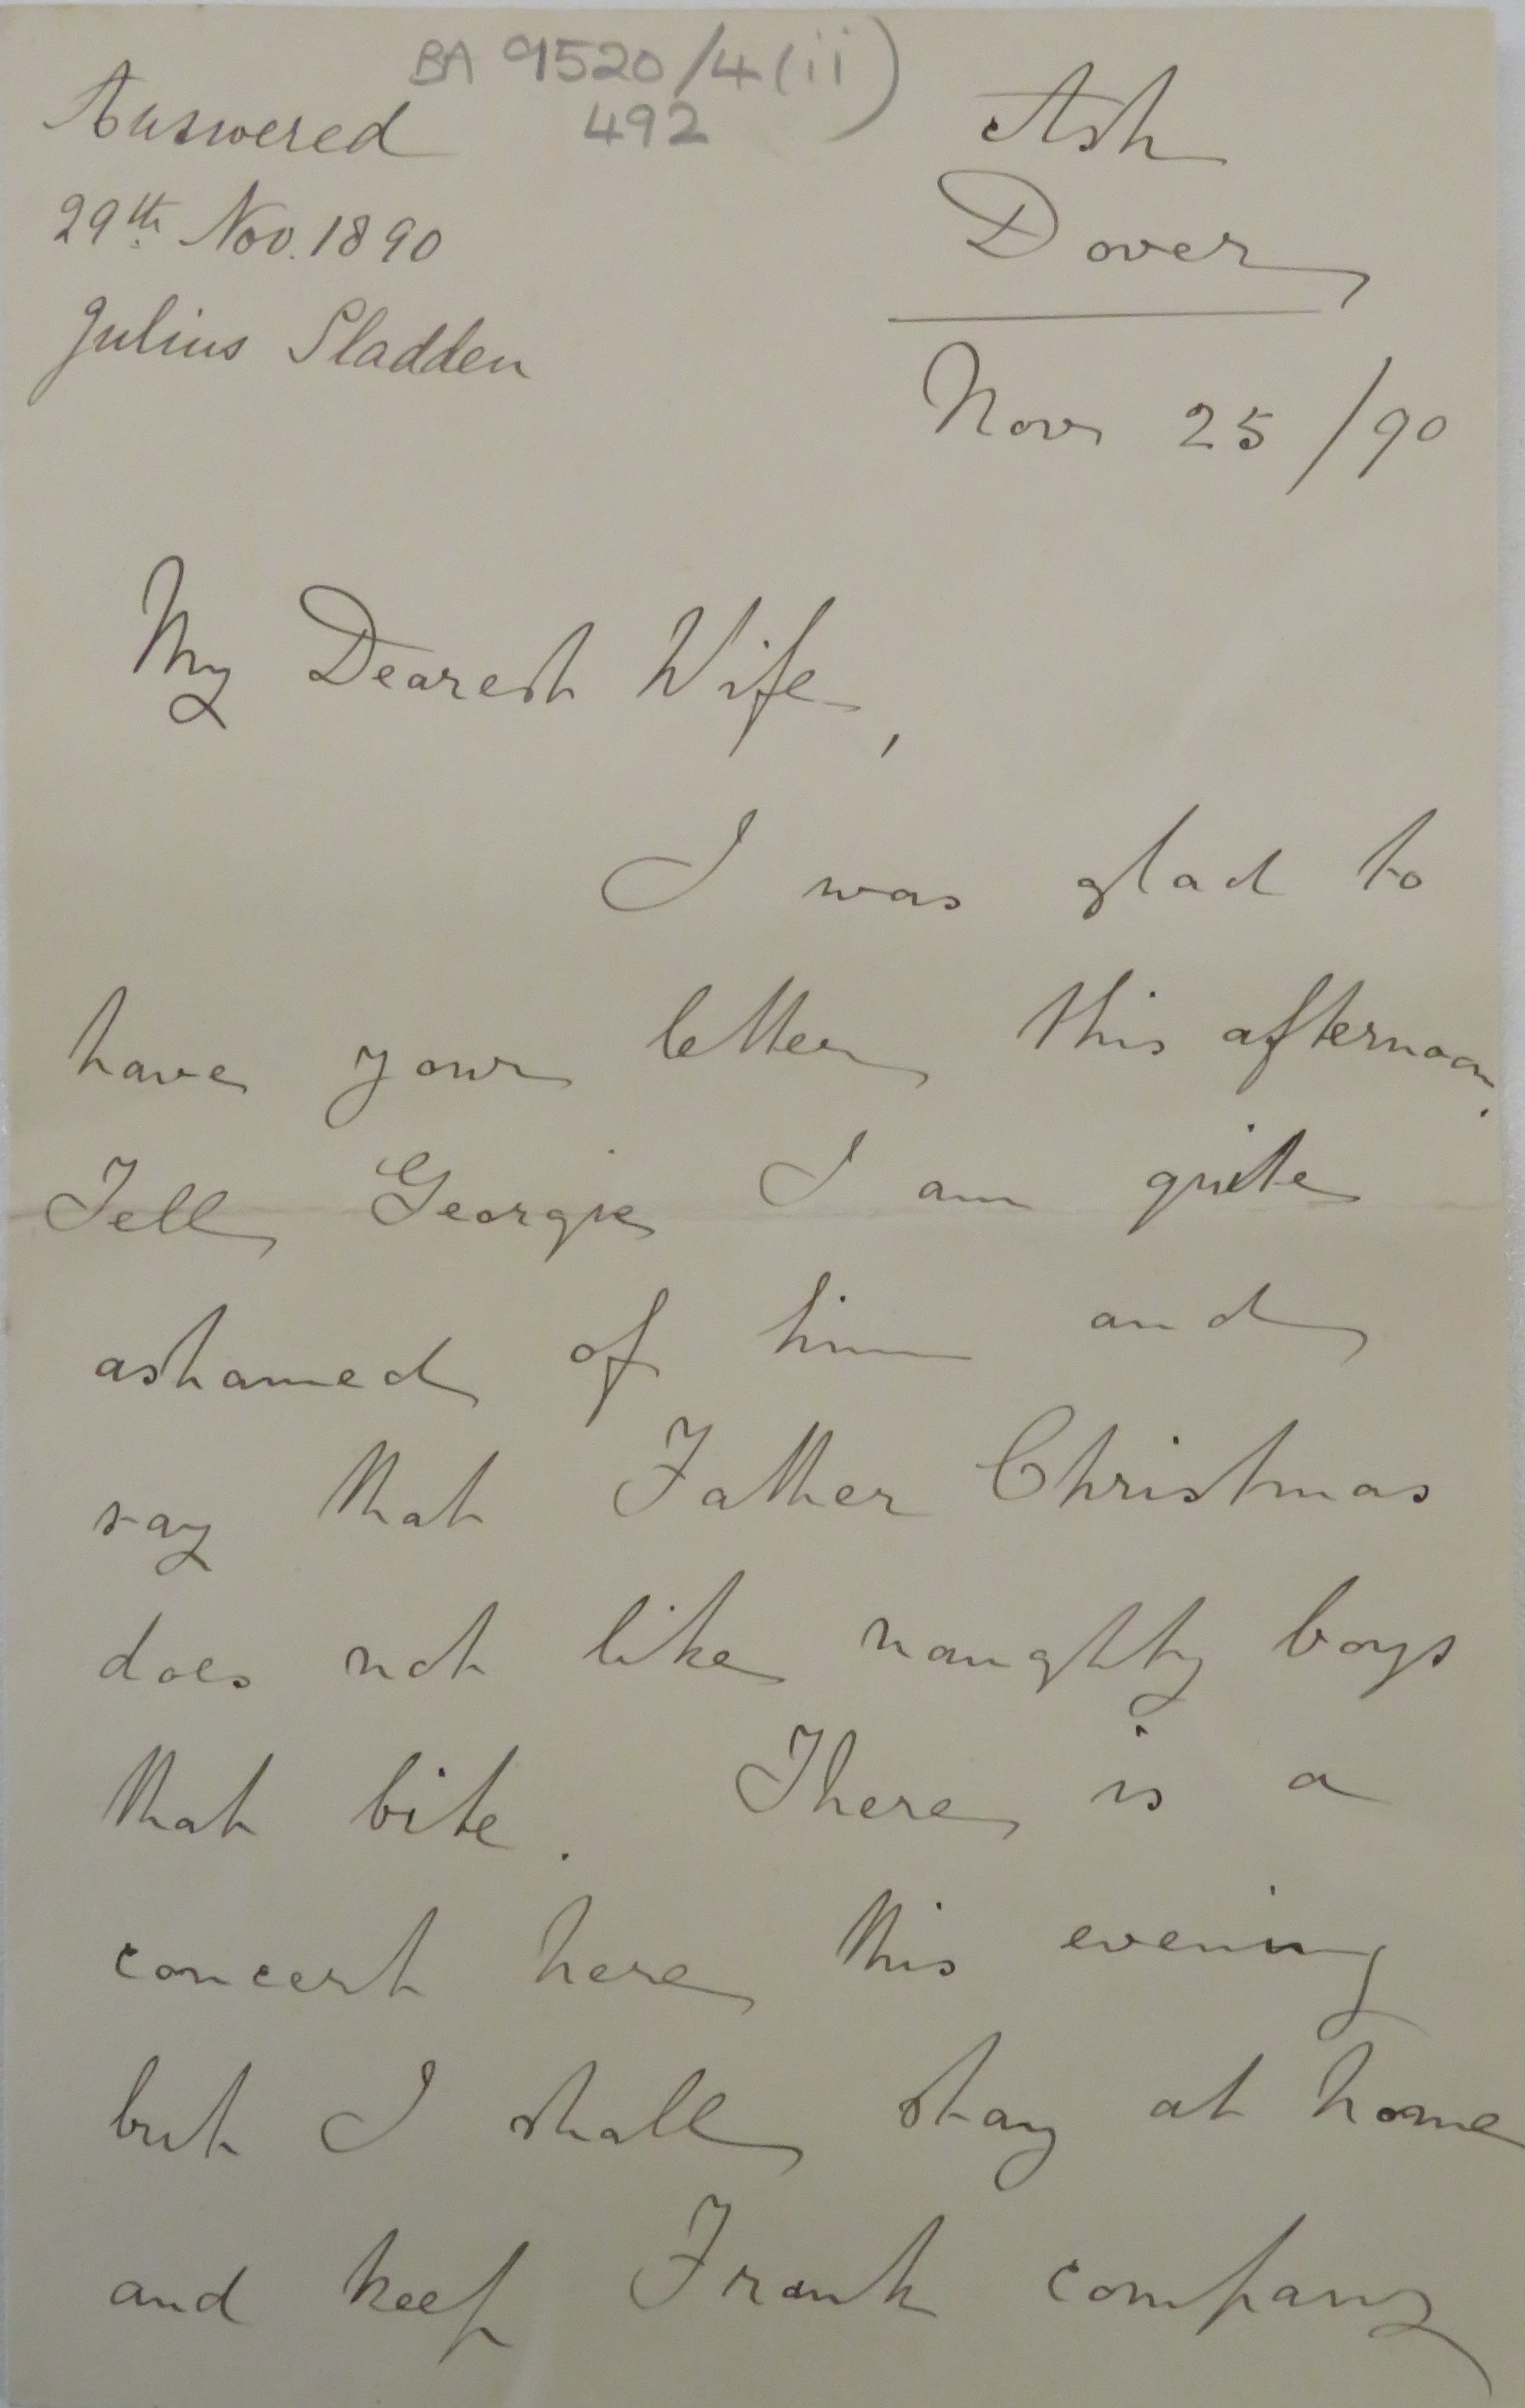 BA 9520/4(ii)
492
Answered
29th Nov. 1890
Julius Sladden
Ash
Dover
Nov 25/90
My Dearest Wife,
I was glad to
have your letter this afternoon.
Tell Georgie I am quite
ashamed of him and
say that Father Christmas
does not like naughty boys
that bite. There is a
concert here this evening
but I shall stay at home
and keep Frank company